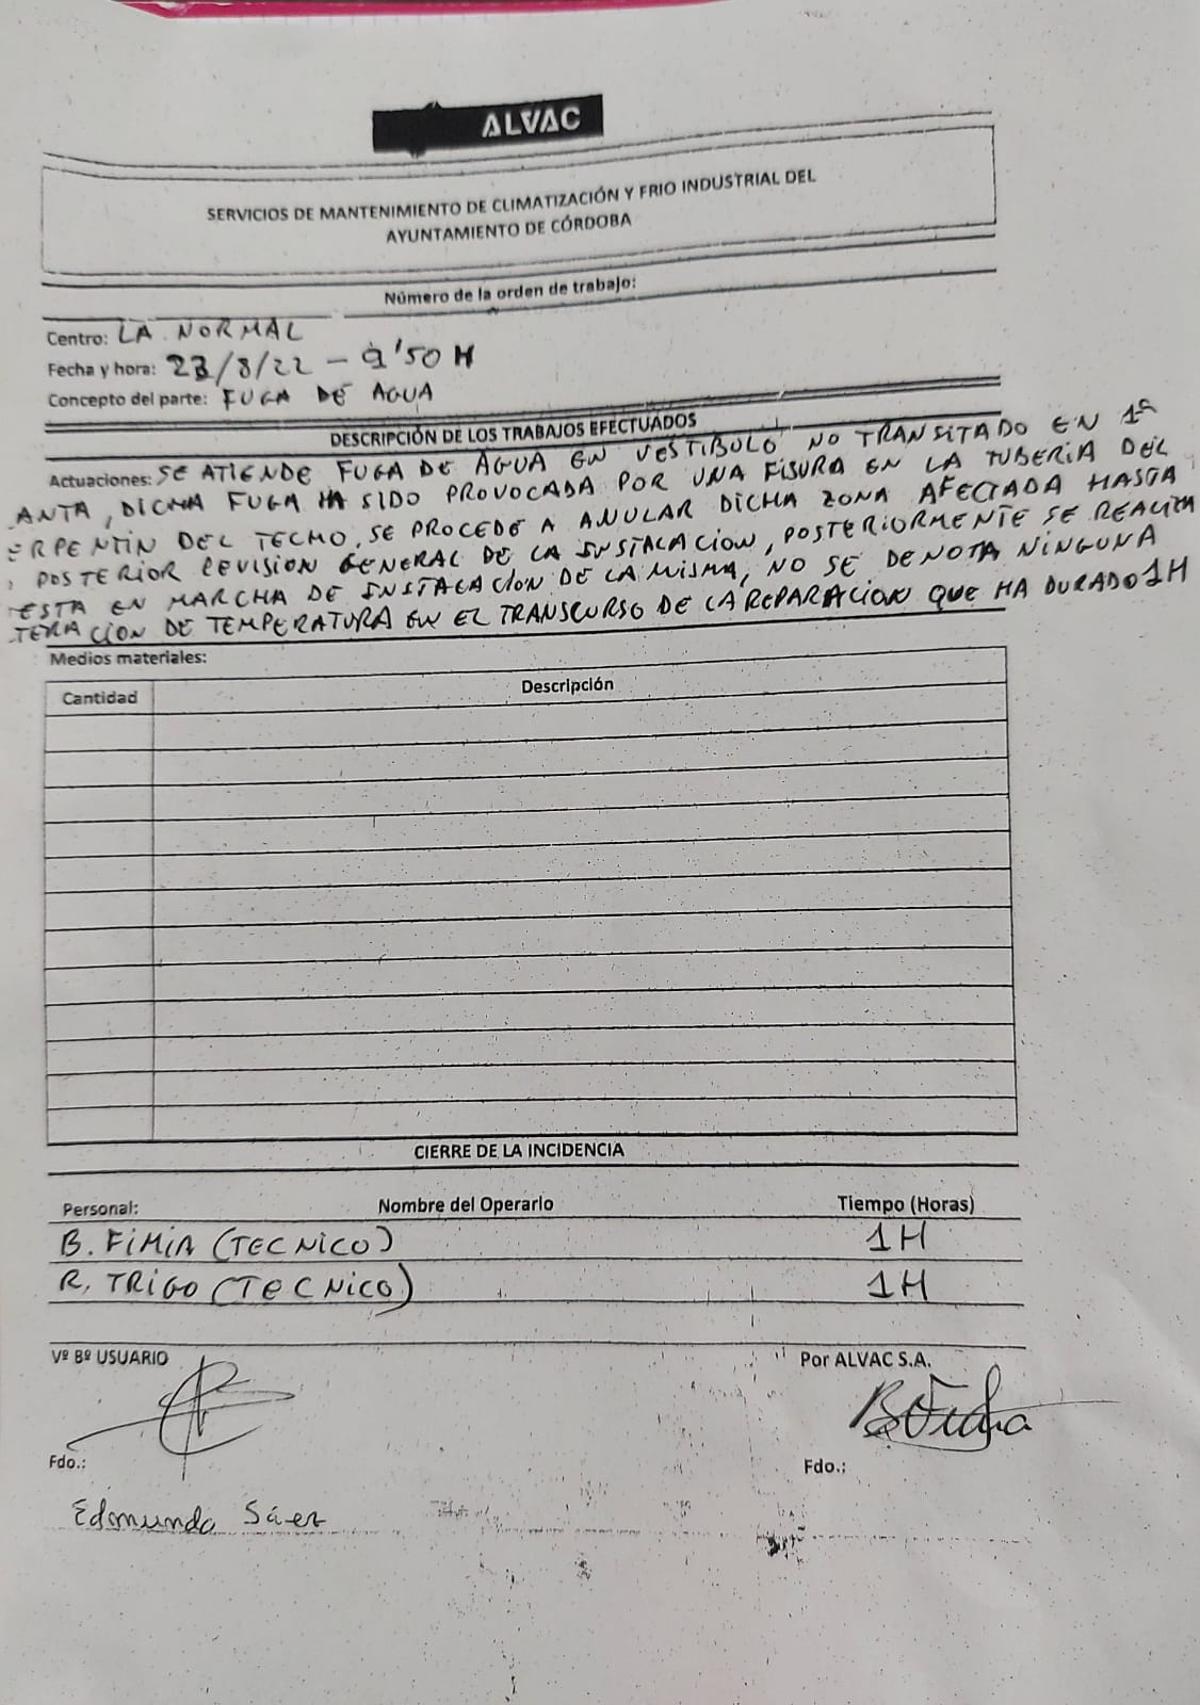 ALVAC
SERVICIOS DE MANTENIMIENTO DE CLIMATIZACIÓN Y FRIO INDUSTRIAL DEL
AYUNTAMIENTO DE CÓRDOBA
Número de la orden de trabajo:
Centro: LA NORMAL
Fecha y hora: 23/8/22 - 9'50 H
Concepto del parte: FUGA DE AGUA
DESCRIPCIÓN DE LOS TRABAJOS EFECTUADOS
Actuaciones: SE ATIENDE FUGA DE AGUA EN VESTIBULO NO TRANSITADO EN 1ª
ANTA, DICHA FUGA HA SIDO PROVOCADA POR UNA FISURA EN LA TUBERIA DEL
ERPENTIN DEL TECHO, SE PROCEDE A ANULAR DICHA ZONA AFECTADA HASTA
POSTERIOR REVISION GENERAL DE LA INSTALACION, POSTERIORMENTE SE REALIZA
ESTA EN MARCHA DE INSTALACION DE LA MISMA, NO SE DENOTA NINGUNA
TERACION DE TEMPERATURA EN EL TRANSCURSO DE LA REPARACION QUE HA DURADO 1H
Medios materiales:
Cantidad Descripción
CIERRE DE LA INCIDENCIA
Personal: Nombre del Operario Tiempo (Horas)
B. FIMIA (TECNICO) 1H
R. TRIGO (TECNICO) 1H
Vº Bº USUARIO Por ALVAC S.A.
Fdo.: Fdo.:
Edmundo Sáez